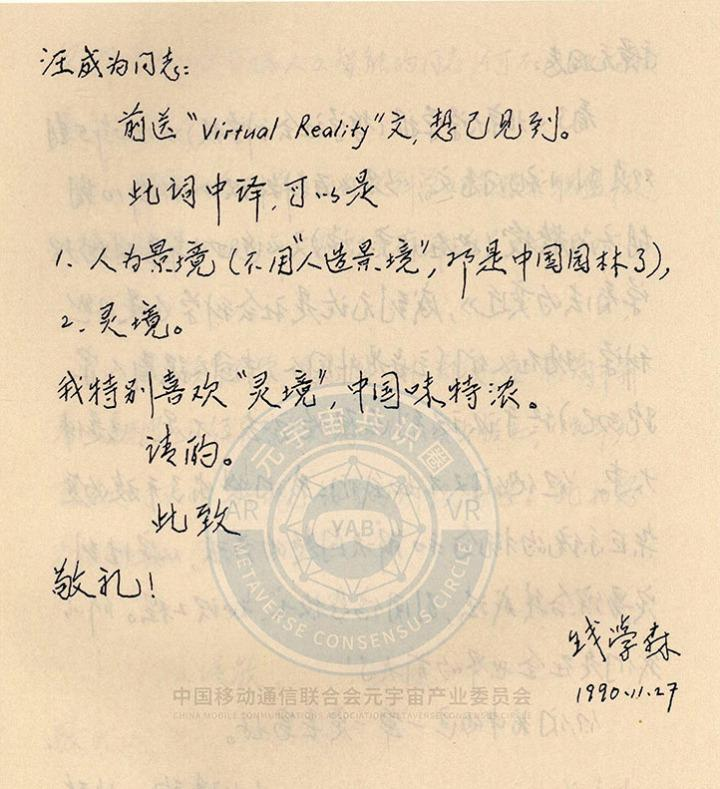 汪成为同志：
前送“Virtual Reality”文，想已见到。
此词中译，可以是
1. 人为景境（不用“人造景境”，那是中国园林了），
2. 灵境。
我特别喜欢“灵境”，中国味特浓。
请酌。
此致
敬礼！
钱学森
1990.11.27
元宇宙共识圈
AR
YAB
VR
METAVERSE CONSENSUS CIRCLE
中国移动通信联合会元宇宙产业委员会
CHINA MOBILE COMMUNICATIONS ASSOCIATION METAVERSE CONSENSUS CIRCLE